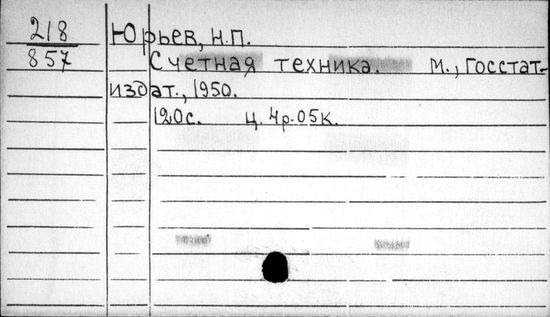 218
857
Юрьев, Н.П.
Счетная техника. М., Госстат-
издат., 1950.
120с. ц. 4р.05к.